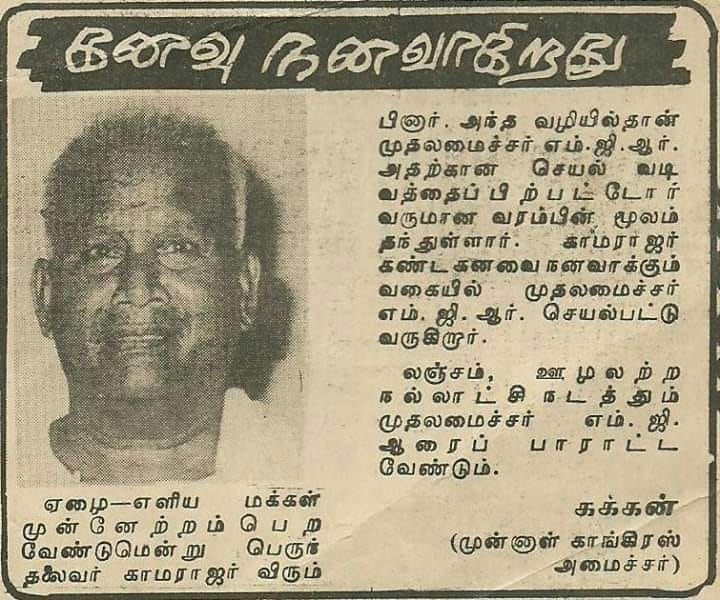 கனவு நனவாகிறது
ஏழை—எளிய மக்கள்
முன்னேற்றம் பெற
வேண்டுமென்று பெருந்
தலைவர் காமராஜர் விரும்
பினார். அந்த வழியில்தான்
முதலமைச்சர் எம்.ஜி.ஆர்.
அதற்கான செயல் வடி
வத்தைப் பிற்பட்டோர்
வருமான வரம்பின் மூலம்
தந்துள்ளார். காமராஜர்
கண்ட கனவை நனவாக்கும்
வகையில் முதலமைச்சர்
எம். ஜி. ஆர். செயல்பட்டு
வருகிறார்.
லஞ்சம், ஊழலற்ற
நல்லாட்சி நடத்தும்
முதலமைச்சர் எம். ஜி.
ஆரைப் பாராட்ட
வேண்டும்.
கக்கன்
(முன்னாள் காங்கிரஸ்
அமைச்சர்)